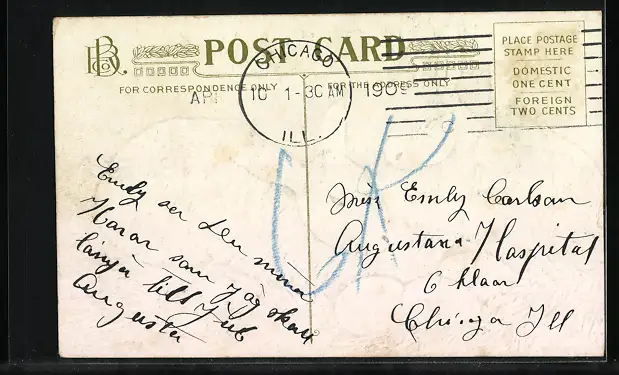 POST CARD
PLACE POSTAGE
STAMP HERE
DOMESTIC
ONE CENT
FOREIGN
TWO CENTS
FOR CORRESPONDENCE ONLY
FOR THE ADDRESS ONLY
CHICAGO
10 1-30 AM 1909
ILL.
Emily ser den
Harar som Jag skall
till Jul
Augusta
Miss Emily Carlson
Augustana Hospital
6
Ill